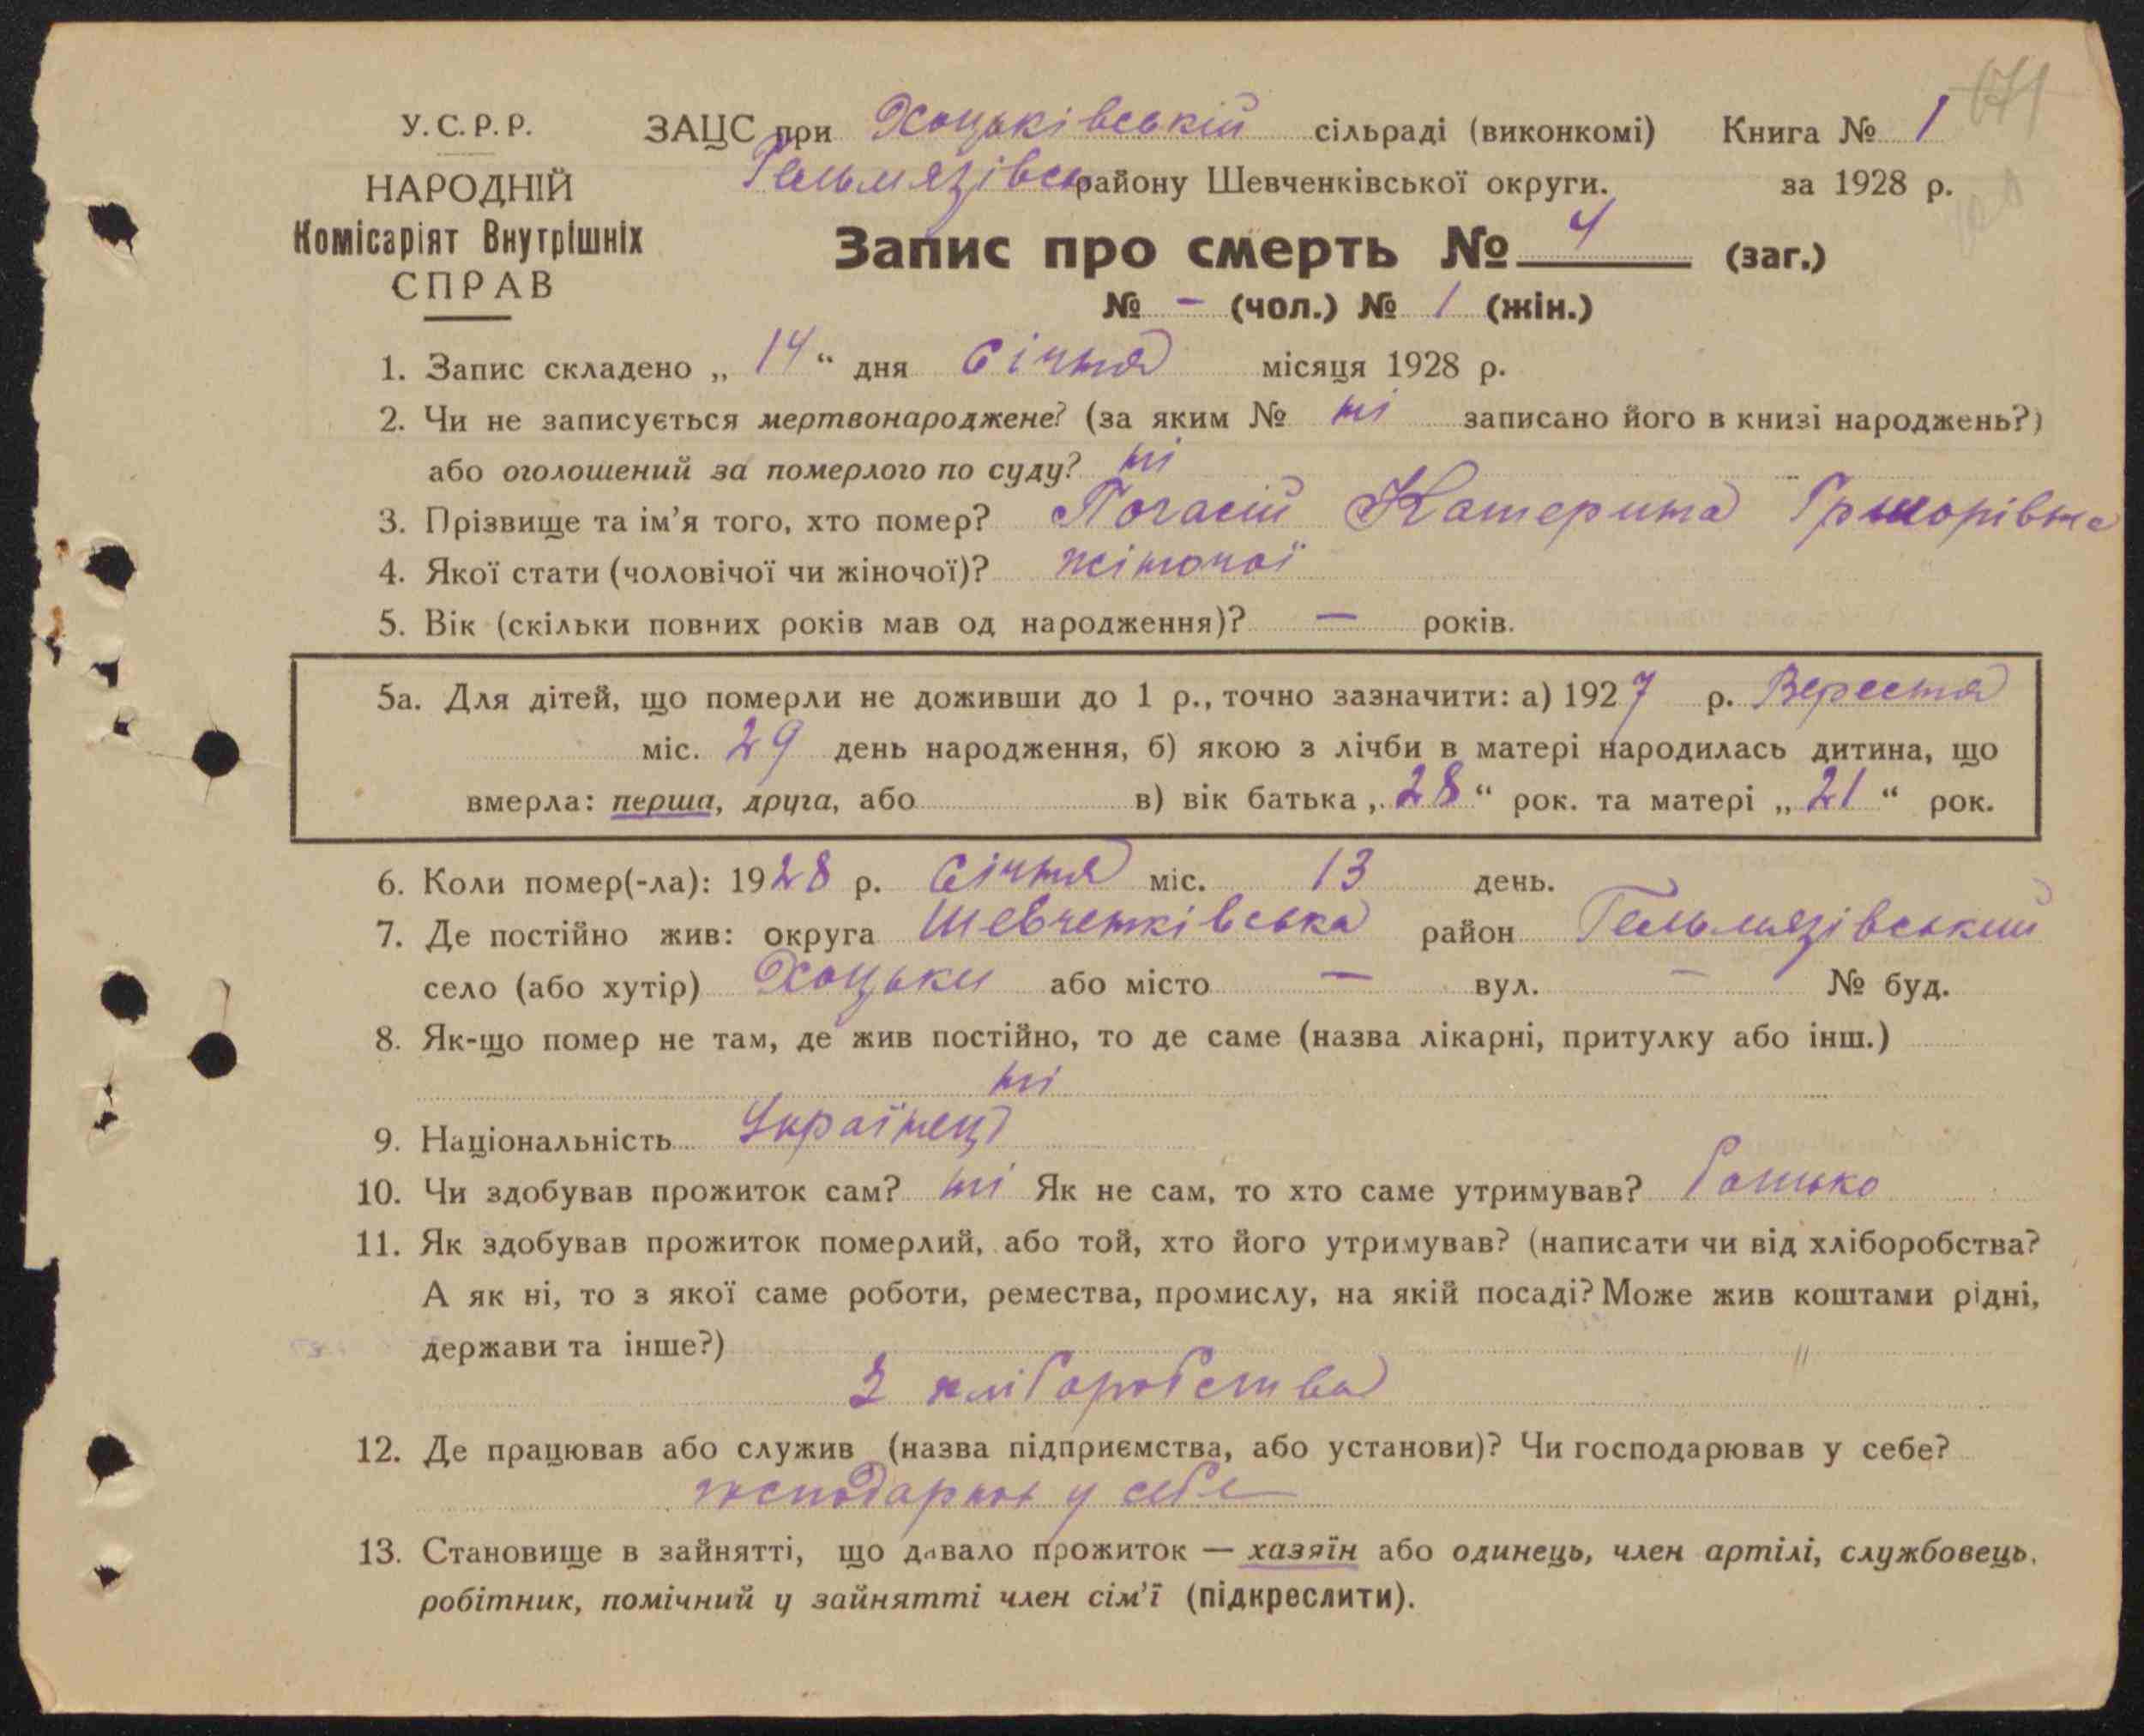 У.С.Р.Р. ЗАЦС при Хоцьківській сільраді (виконкомі) Книга № 1
Гельмязівськ району Шевченківської округи. за 1928 р.
НАРОДНІЙ
Комісаріят Внутрішніх
СПРАВ
Запис про смерть № 4 (заг.)
№ - (чол.) № 1 (жін.)
1. Запис складено „ 14 “ дня Січня місяця 1928 р.
2. Чи не записується мертвонароджене? (за яким № ні записано його в книзі народжень?)
або оголошений за померлого по суду? ні
3. Прізвище та ім’я того, хто помер? Погасій Катерина Григорівна
4. Якої стати (чоловічої чи жіночої)? жіночої
5. Вік (скільки повних років мав од народження)? — років.
5а. Для дітей, що померли не доживши до 1 р., точно зазначити: а) 1927 р. Вересня
міс. 29 день народження, б) якою з лічби в матері народилась дитина, що
вмерла: перша, друга, або в) вік батька „ 28 “ рок. та матері „ 21 “ рок.
6. Коли помер(-ла): 1928 р. Січня міс. 13 день.
7. Де постійно жив: округа Шевченківська район Гельмязівський
село (або хутір) Хоцьки або місто — вул. — № буд.
8. Як-що помер не там, де жив постійно, то де саме (назва лікарні, притулку або інш.)
ні
9. Національність Українець
10. Чи здобував прожиток сам? ні Як не сам, то хто саме утримував? батько
11. Як здобував прожиток померлий, або той, хто його утримував? (написати чи від хліборобства?
А як ні, то з якої саме роботи, ремества, промислу, на якій посаді? Може жив коштами рідні,
держави та інше?)
З хліборобства
12. Де працював або служив (назва підприємства, або установи)? Чи господарював у себе?
господарює у себе
13. Становище в зайнятті, що давало прожиток — хазяїн або одинець, член артілі, службовець,
робітник, помічний у зайнятті член сім’ї (підкреслити).